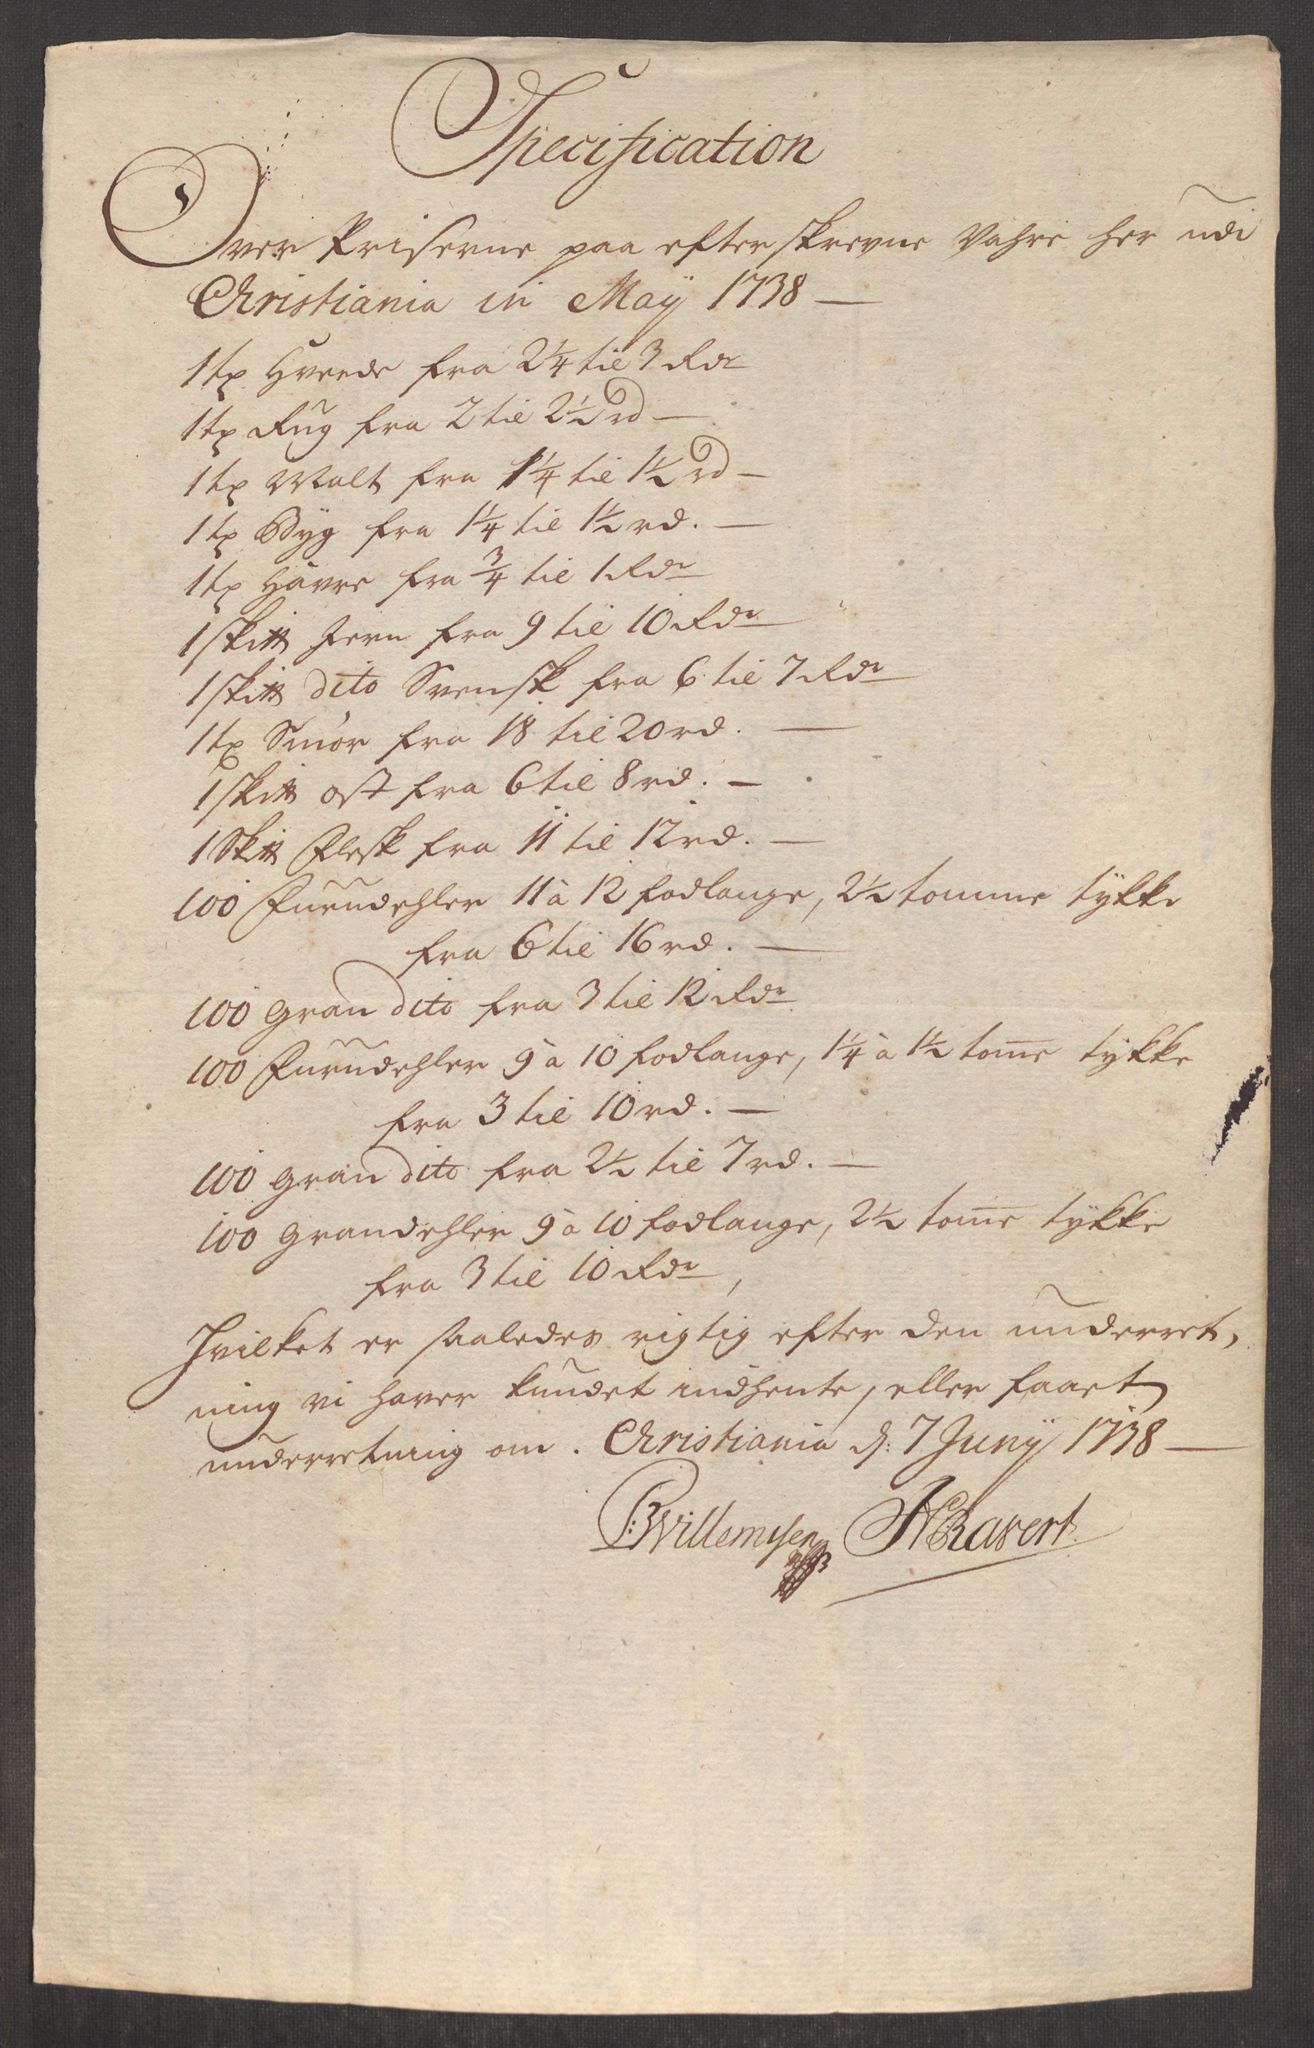 Specification
Over Priserne paa efterskrevne Vahre her udi
Christiania in Maÿ 1738 —
1 tꝑ Hveede fra 2¼ til 3 Rdr
1 tꝑ Rug fra 2 til 2½ rd —
1 tꝑ Malt fra 1¼ til 1½ rd —
1 tꝑ Byg fra 1¼ til 1½ rd. —
1 tꝑ Havre fra ¾ til 1 Rdr
1 skit℔ Jern fra 9 til 10 Rdr
1 skit℔ dito Svensk fra 6 til 7 Rdr
1 tꝑ Smör fra 18 til 20 rd. —
1 skit℔ ost fra 6 til 8 rd. —
1 Skit℔ Flesk fra 11 til 12 rd. —
100 Furudehler 11 à 12 fodlange, 2½ tomme tÿkke
fra 6 til 16 rd. —
100 gran dito fra 3 til 12 Rdr
100 Furudehler 9 à 10 fodlange, 1¼ à 1½ tom̅e tÿkke
fra 3 til 10 rd. —
100 gran dito fra 2½ til 7 rd. —
100 grandehler 9 à 10 fodlange, 2½ tom̅e tÿkke
fra 3 til 10 Rdr,
Hvilket er saaledes rigtig efter den underret,
ning vi haver kundet indhente, eller faaet
underretning om. Christiania d: 7 Junÿ 1738 —
Willemsen HRavert